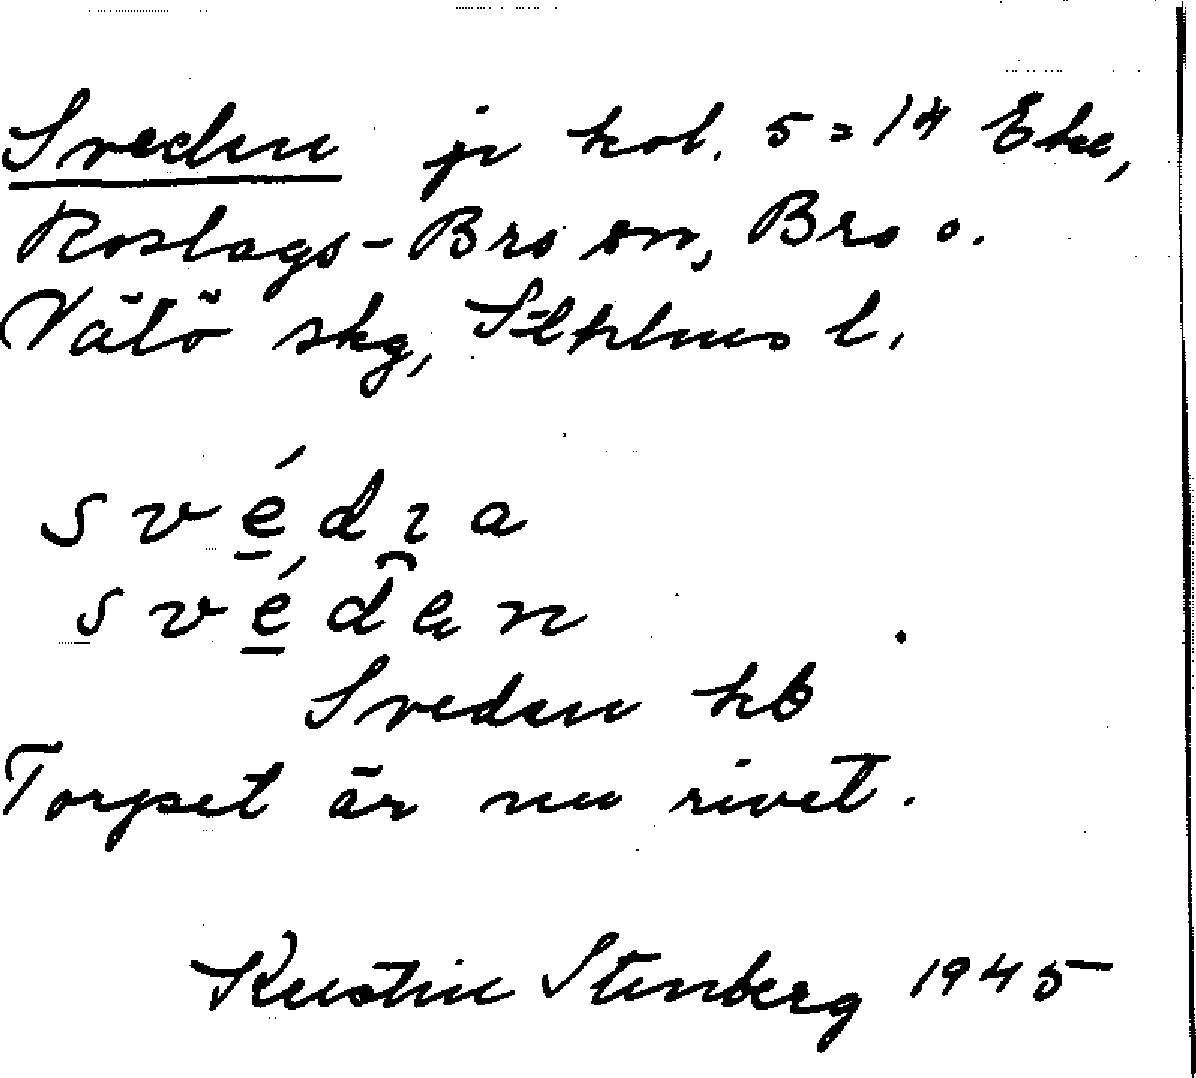 Sveden på kol. 5 = 1⁴ Eke,
Roslags-Bro sn, Bro o.
Vätö skg, Sthlms l.
svédıa
svédên
Svedan kb
Torpet är nu rivet.
Kerstin Stenberg 1945